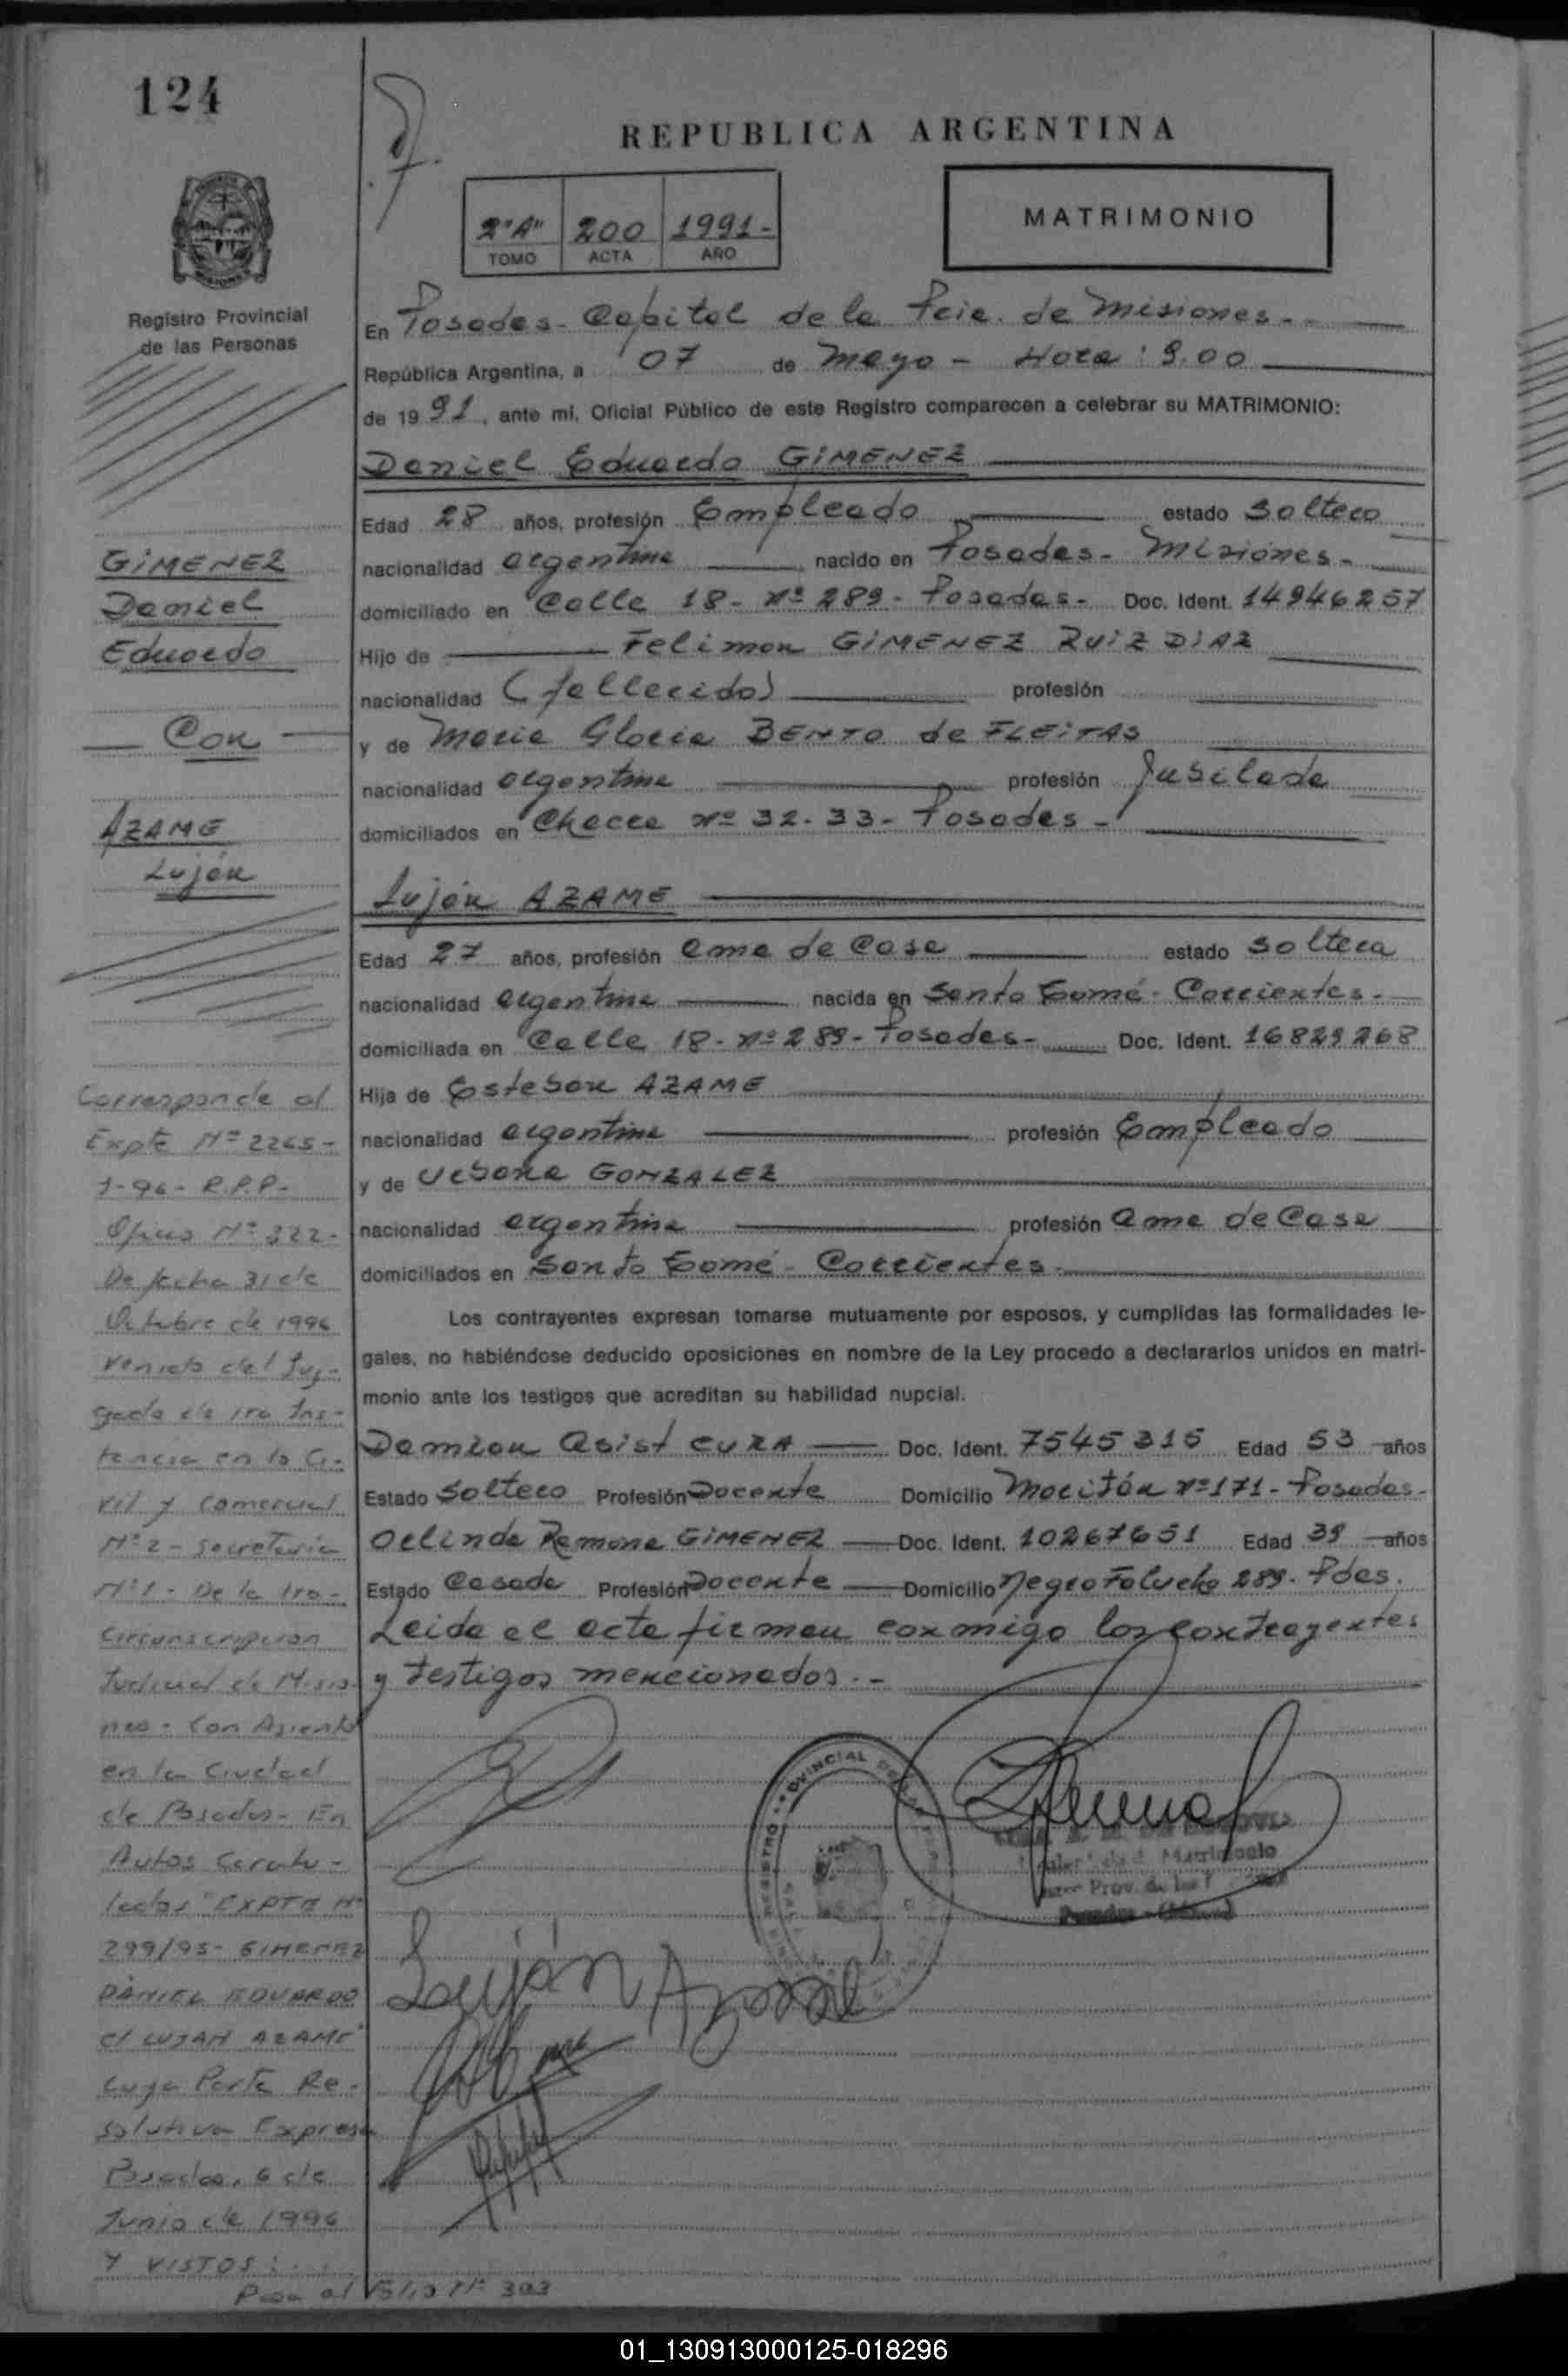 124
REPUBLICA ARGENTINA
2º"A" 200 1991-
TOMO ACTA AÑO
MATRIMONIO
Registro Provincial
de las Personas
En Posadas - Capital de la Pcia. de Misiones.-
República Argentina, a 07 de Mayo - Hora: 9.00
de 1991, ante mí, Oficial Público de este Registro comparecen a celebrar su MATRIMONIO:
Daniel Eduardo GIMENEZ
Edad 28 años, profesión Empleado estado Soltero
nacionalidad argentina nacido en Posadas - Misiones.-
domiciliado en Calle 18 - Nº 289 - Posadas - Doc. Ident. 14946257
Hijo de Felimon GIMENEZ RUIZ DIAZ
nacionalidad (fallecido) profesión
y de Maria Gloria BENTO de FLEITAS
nacionalidad argentina profesión Jubilada
domiciliados en Chacra Nº 32-33 - Posadas -
Luján AZAME
Edad 27 años, profesión ama de Casa estado Soltera
nacionalidad argentina nacida en Santo Tomé - Corrientes.-
domiciliada en Calle 18 - Nº 289 - Posadas - Doc. Ident. 16829268
Hija de Esteban AZAME
nacionalidad argentina profesión Empleado
y de Urbana GONZALEZ
nacionalidad argentina profesión ama de Casa
domiciliados en Santo Tomé - Corrientes.
Los contrayentes expresan tomarse mutuamente por esposos, y cumplidas las formalidades le-
gales, no habiéndose deducido oposiciones en nombre de la Ley procedo a declararlos unidos en matri-
monio ante los testigos que acreditan su habilidad nupcial.
Damian Asist CURA Doc. Ident. 7545315 Edad 53 años
Estado Soltero Profesión Docente Domicilio Moritán Nº 171 - Posadas -
Orlinda Ramona GIMENEZ Doc. Ident. 10267651 Edad 39 años
Estado Casada Profesión Docente Domicilio Negro Falucho 289 - Pdas.
Leida el acta firman conmigo los contrayentes
y testigos mencionados.-
GIMENEZ
Daniel
Eduardo
Con
AZAME
Luján
Corresponde al
Expte Nº 2265-
1-96- R.P.P.-
Oficio Nº 322-
De fecha 31 de
Octubre de 1996
venido del Juz-
gado de 1ra Ins-
tancia en lo Ci-
vil y Comercial
Nº 2 - Secretaria
Nº 1 - De la 1ra-
Circunscripcion
Judicial de Misio-
nes - Con Asiento
en la Ciudad
de Posadas - En
Autos Caratu-
lados "EXPTE Nº
299/95- GIMENEZ
DANIEL EDUARDO
C/ LUJAN AZAME"
Cuya Parte Re-
solutiva Expresa
Posadas, 6 de
Junio de 1996
Y VISTOS:...
Pasa al Folio Nº 303
REGISTRO PROVINCIAL DE LAS
Matrimonio
Prov. de las
Posadas
Luján Azame
01_130913000125-018296